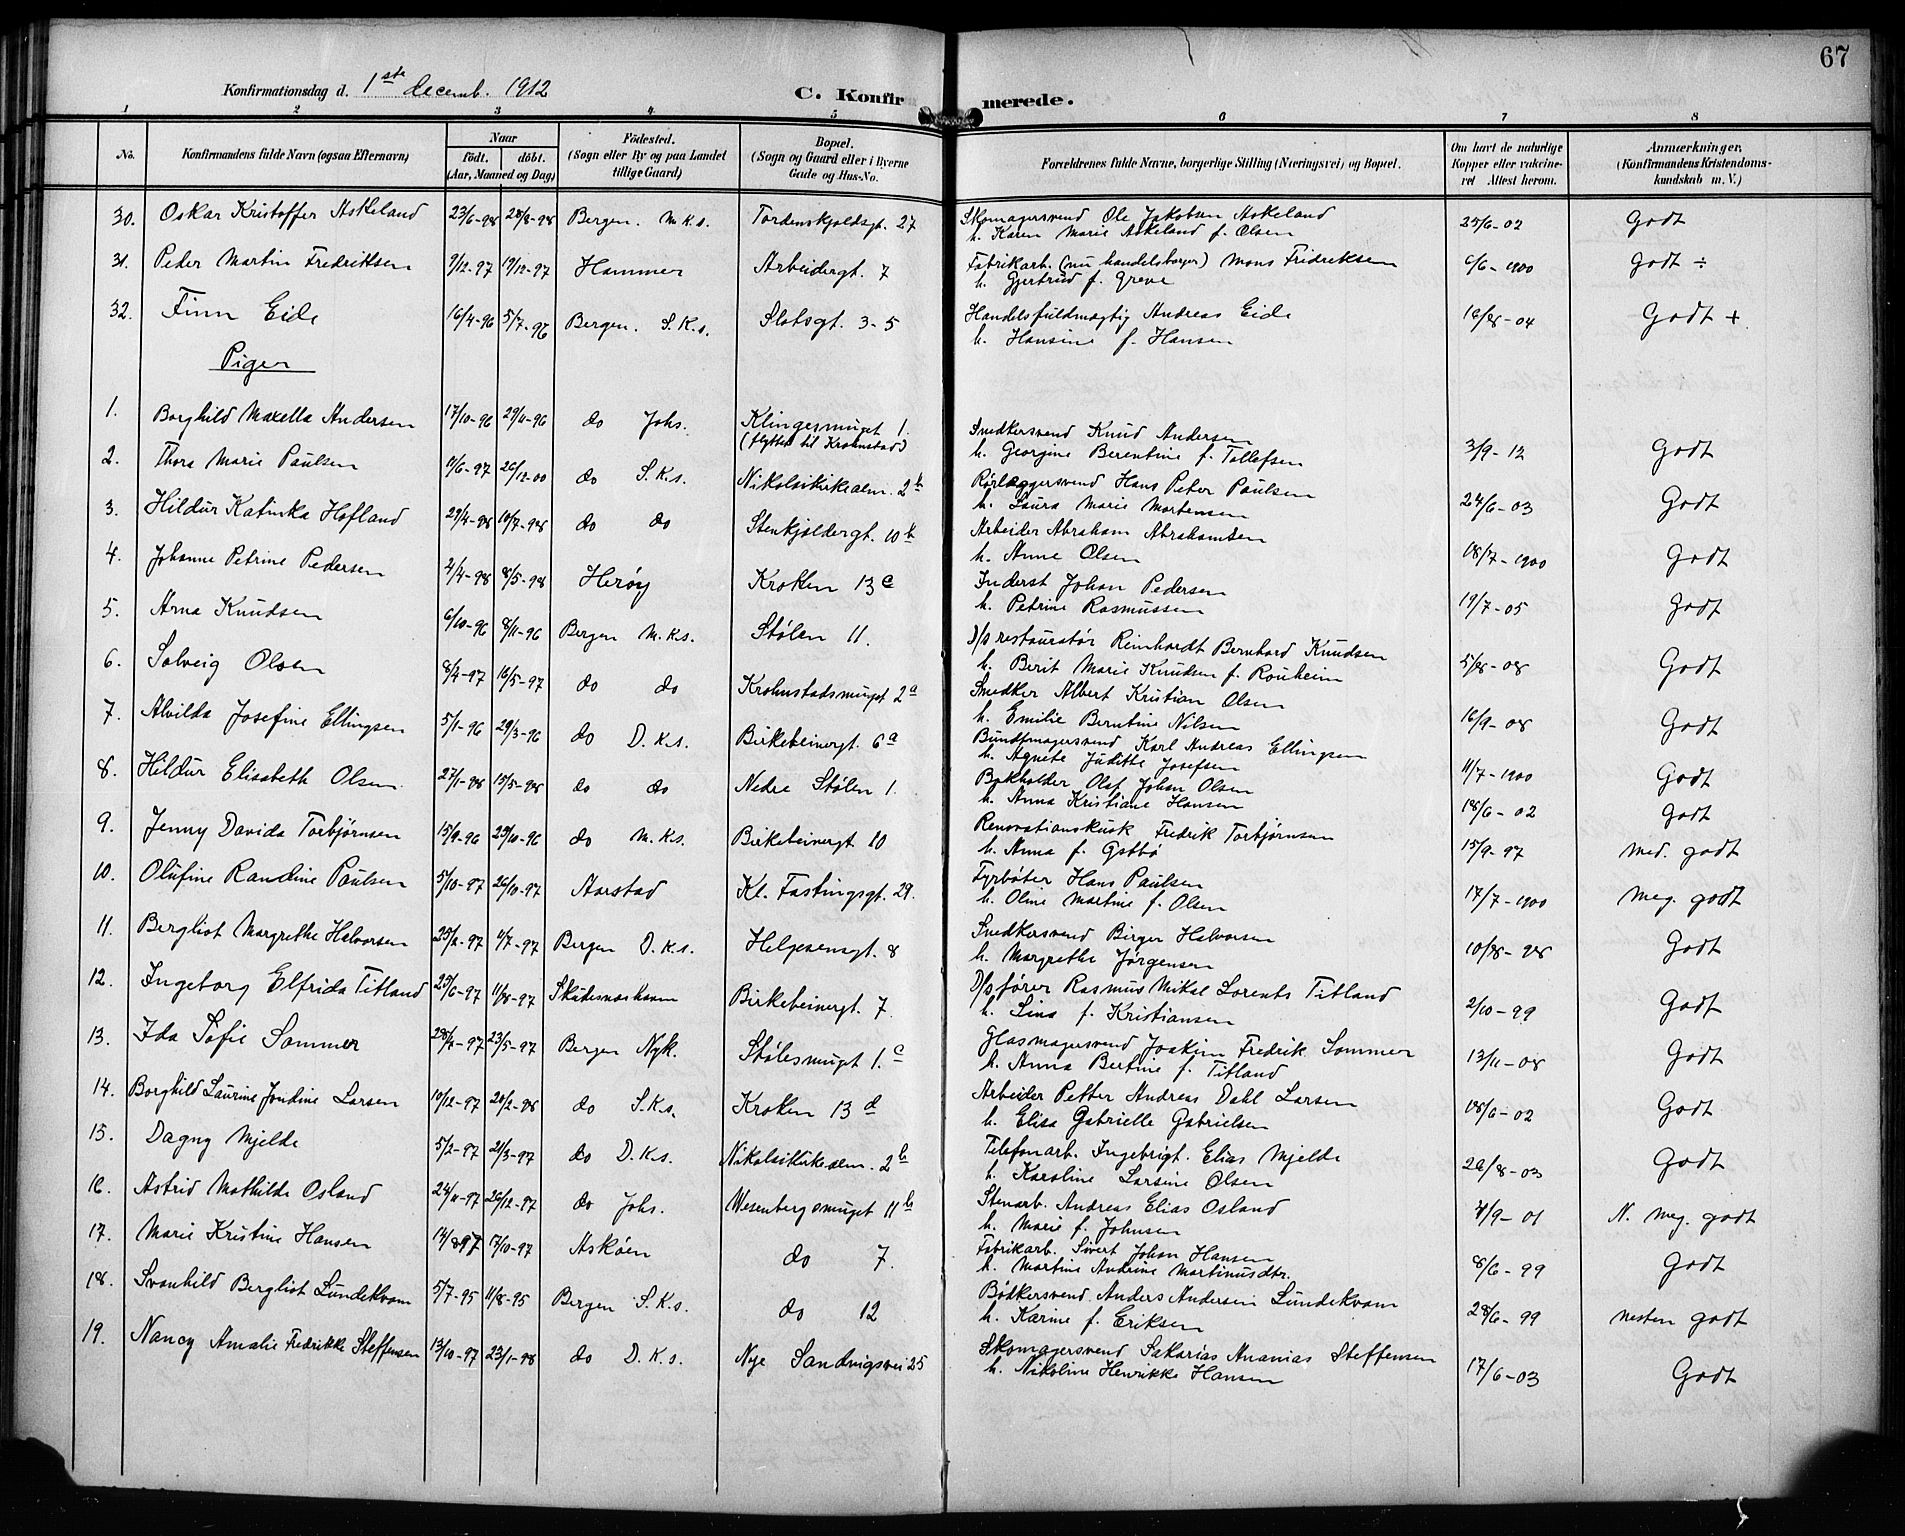 67
Konfirmationsdag d. 1ste decemb. 1912 C. Konfirmerede.
1 2 3 4 5 6 7 8
No. Konfirmandens fulde Navn (ogsaa Efternavn) Naar født. døbt. (Aar, Maaned og Dag) Fødested. (Sogn eller By og paa Landet tillige Gaard) Bopæl. (Sogn og Gaard eller i Byerne Gade og Hus-No. Forældrenes fulde Navne, borgerlige Stilling (Næringsvei) og Bopæl. Om havt de naturlige Kopper eller vaccineret Attest herom. Anmærkninger, (Konfirmandens Kristendomskundskab m. V.)
30. Oskar Kristoffer Askeland 23/6-98 28/8-98 Bergen. M.K.s. Tordenskjoldsgt. 27 Skomagersvend Ole Jakobsen Askeland 25/6-02 Godt
h. Karen Marie Askeland f. Olsen
31. Peder Martin Fredriksen 9/12-97 19/12-97 Hammer Arbeidergt. 7 Fabrikarb. (nu handelsborger) Mons Fridreksen 6/6-1900 Godt ÷
h. Gjertrud f. Greve
32. Finn Eide 16/4-96 5/7-96 Bergen. S.K.s. Slotsgt. 3-5 Handelsfuldmægtig Andreas Eide 16/8-04 Godt +
h. Hansine f. Hansen
Piger
1. Borghild Maxella Andersen 17/10-96 29/11-96 do Johs. Klingesmuget 1. (flyttet til Krohnstad) Snedkersvend Knud Andersen 3/9-12 Godt
h. Georgine Berentine f. Tollefsen
2. Thora Marie Paulsen 11/6-97 26/12-00 do S.K.s. Nikolaikirkealm. 2b Rørlæggersvend Hans Peter Paulsen 24/6-03 Godt
h. Laura Marie Mortensen
3. Hildur Katinka Hofland 29/4-98 10/7-98 do do Stenkjeldergt. 10b Arbeider Abraham Abrahamsen 18/7-1900 Godt
h. Anne Olsen
4. Johanne Petrine Pedersen 2/4-98 8/5-98 Herøy Kroken 13c Inderst Johan Pedersen 19/7-05 Godt
h. Petrine Rasmussen
5. Arna Knudsen 6/10-96 8/11-96 Bergen M.K.s. Stølen 11. D/s restauratør Reinhardt Bernhard Knudsen 5/8-08 Godt
h. Berit Marie Knudsen f. Rouheim
6. Solveig Olsen 8/4-97 16/5-97 do do Krohnstadsmuget 2a Snedker Albert Kristian Olsen 16/9-08 Godt
h. Emilie Berntine Nilsen
7. Alvilda Josefine Ellingsen 5/1-96 29/3-96 do D.K.s. Birkebeinergt. 6a Bundtmagersvend Karl Andreas Ellingsen 11/7-1900 Godt
h. Agnete Judithe Josefsen
8. Hildur Elisabeth Olsen 27/1-98 15/5-98 do do Nedre Stølen 1. Bokholder Olaf Johan Olsen 18/6-02 Godt
h. Anna Kristiane Hansen
9. Jenny Davida Torbjørnsen 15/9-96 25/10-96 do M.K.s. Birkebeinergt 10 Renovationskusk Fredrik Torbjørnsen 15/9-97 Med. godt
h. Anna f. Gstbø
10. Olufine Randine Paulsen 5/10-97 26/10-97 Aarstad Kl. Fastingsgt. 29. Fyrbøter Hans Paulsen 17/7-1900 Meg. godt
h. Oline Martine f. Olsen
11. Bergliot Margrethe Halvorsen 25/2-97 11/7-97 Bergen D.K.s. Helgesensgt. 8 Snedkersvend Birger Halvorsen 10/8-98 Godt
h. Margrethe Jørgensen
12. Ingeborg Elfrida Titland 25/6-97 11/8-97 Skudesneshavn Birkebeinergt. 7. D/s fører Rasmus Mikal Lorents Titland 2/10-99 Godt
h. Lina f. Kristiansen
13. Ida Sofie Sommer 28/4-97 23/5-97 Bergen Nyk. Stølesmuget 1.c Glasmagersvend Joakim Fredrik Sommer 13/11-08 Godt
h. Anna Bertine f. Titland
14. Borghild Laurine Jondine Larsen 10/12-97 20/2-98 do S.K.s. Kroken 13 d Arbeider Petter Andreas Dahl Larsen 18/6-02 Godt
h. Elisa Gabrielle Gabrielsen
15. Dagny Mjelde 5/2-97 21/3-97 do D.K.s. Nikolaikirkealm. 2b Telefonarb. Ingebrigt Elias Mjelde 26/8-03 Godt
h. Karoline Larsine Olsen
16. Astrid Mathilde Osland 24/11-97 26/12-97 do Johs. Wesenbergsmuget 11b Stenarb. Andreas Elias Osland 4/9-01 N. meg. godt
h. Marie f. Johnsen
17. Marie Kristine Hansen 14/8 97 17/10-97 Askøen do 7. Fabrikarb. Sivert Johan Hansen 8/6-99 Godt
h. Martine Andrine Martinusdtr.
18. Svanhild Bergliot Lundekvam 5/7-95 11/8-95 Bergen S.K.s. do 12 Bødkersvend Anders Andersen Lundekvam 28/6-99 Nesten godt
h. Karine f. Eriksen
19. Nancy Amalie Fredrikke Steffensen 13/10-97 23/1-98 do D.K.s. Nye Sandvigsvei 25 Skomagersvend Sakarias Ananias Steffensen 17/6-03 Godt
h. Nikoline Henrikke Hansen